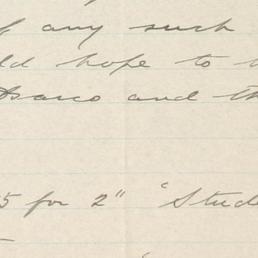 f any such
ld hope to
and th
5 for 2" 'Stud